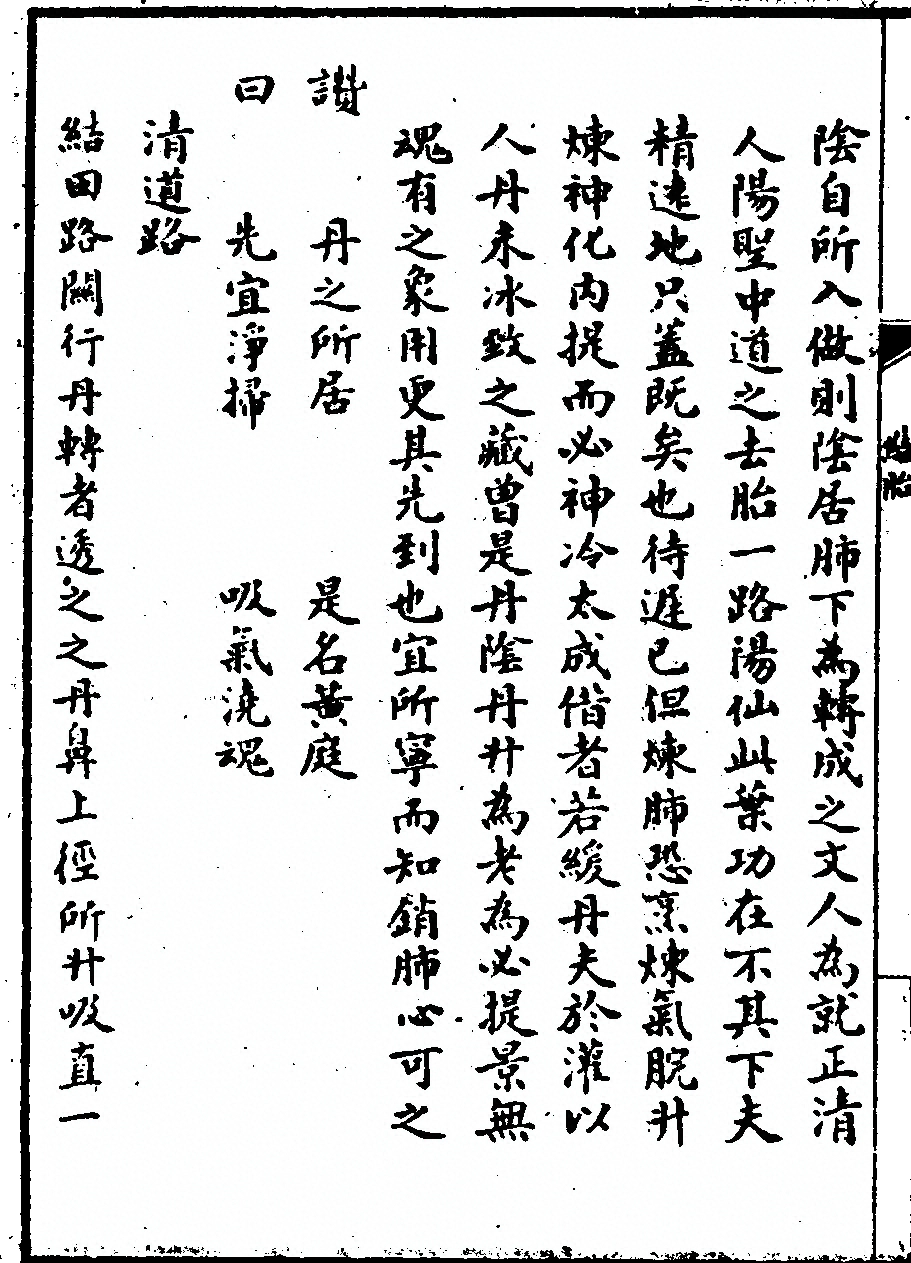 陰自所入做則陰居肺下為轉成之文人為就正清
人陽聖中道之去胎一路陽仙此葉功在不其下夫
精速地只蓋既矣也待遲已但煉肺恐烹煉氣脘升
煉神化內提而必神冷太成偕者若緩丹夫於灌以
人丹永冰致之藏曾是丹陰丹升為老為必提景無
魂有之象用更其先到也宜所寧而知銷肺心可之
讚　丹之所居　是名黃庭
曰　先宜淨掃　吸氣澆魂
清道路
結田路關行丹轉者透之之丹鼻上徑所升吸直一
結胎